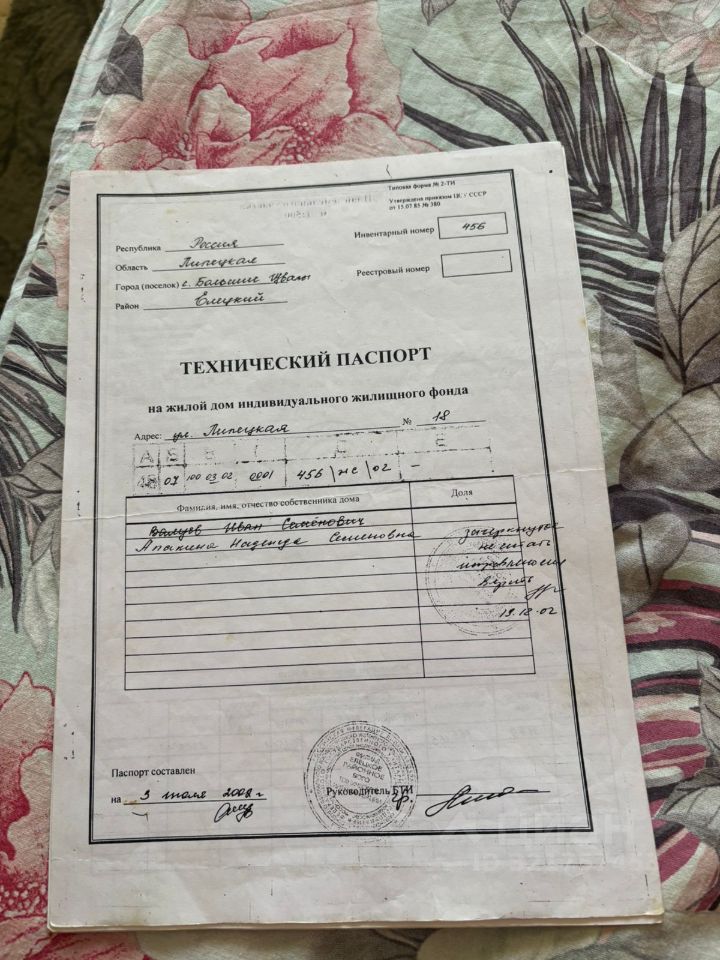 Типовая форма № 2-ТИ
Утверждена приказом ЦСУ СССР
от 15.07.85 № 380
Инвентарный номер 456
Республика Россия
Область Липецкая
Реестровый номер
Город (поселок) с. Большие Извалы
Район Елецкий
ТЕХНИЧЕСКИЙ ПАСПОРТ
на жилой дом индивидуального жилищного фонда
Адрес: ул. Липецкая № 18
А Б В Г Д Е
07 100 03 02 0001 456 \ жс \ 02 -
Фамилия, имя, отчество собственника дома Доля
Иван Семёнович
Надежда Семеновна
зачеркнутое
не читать
исправленному
верить
19.12.02
Паспорт составлен
на 3 июля
Руководитель БТИ
ЕЛЕЦКОЕ
РАЙОННОЕ